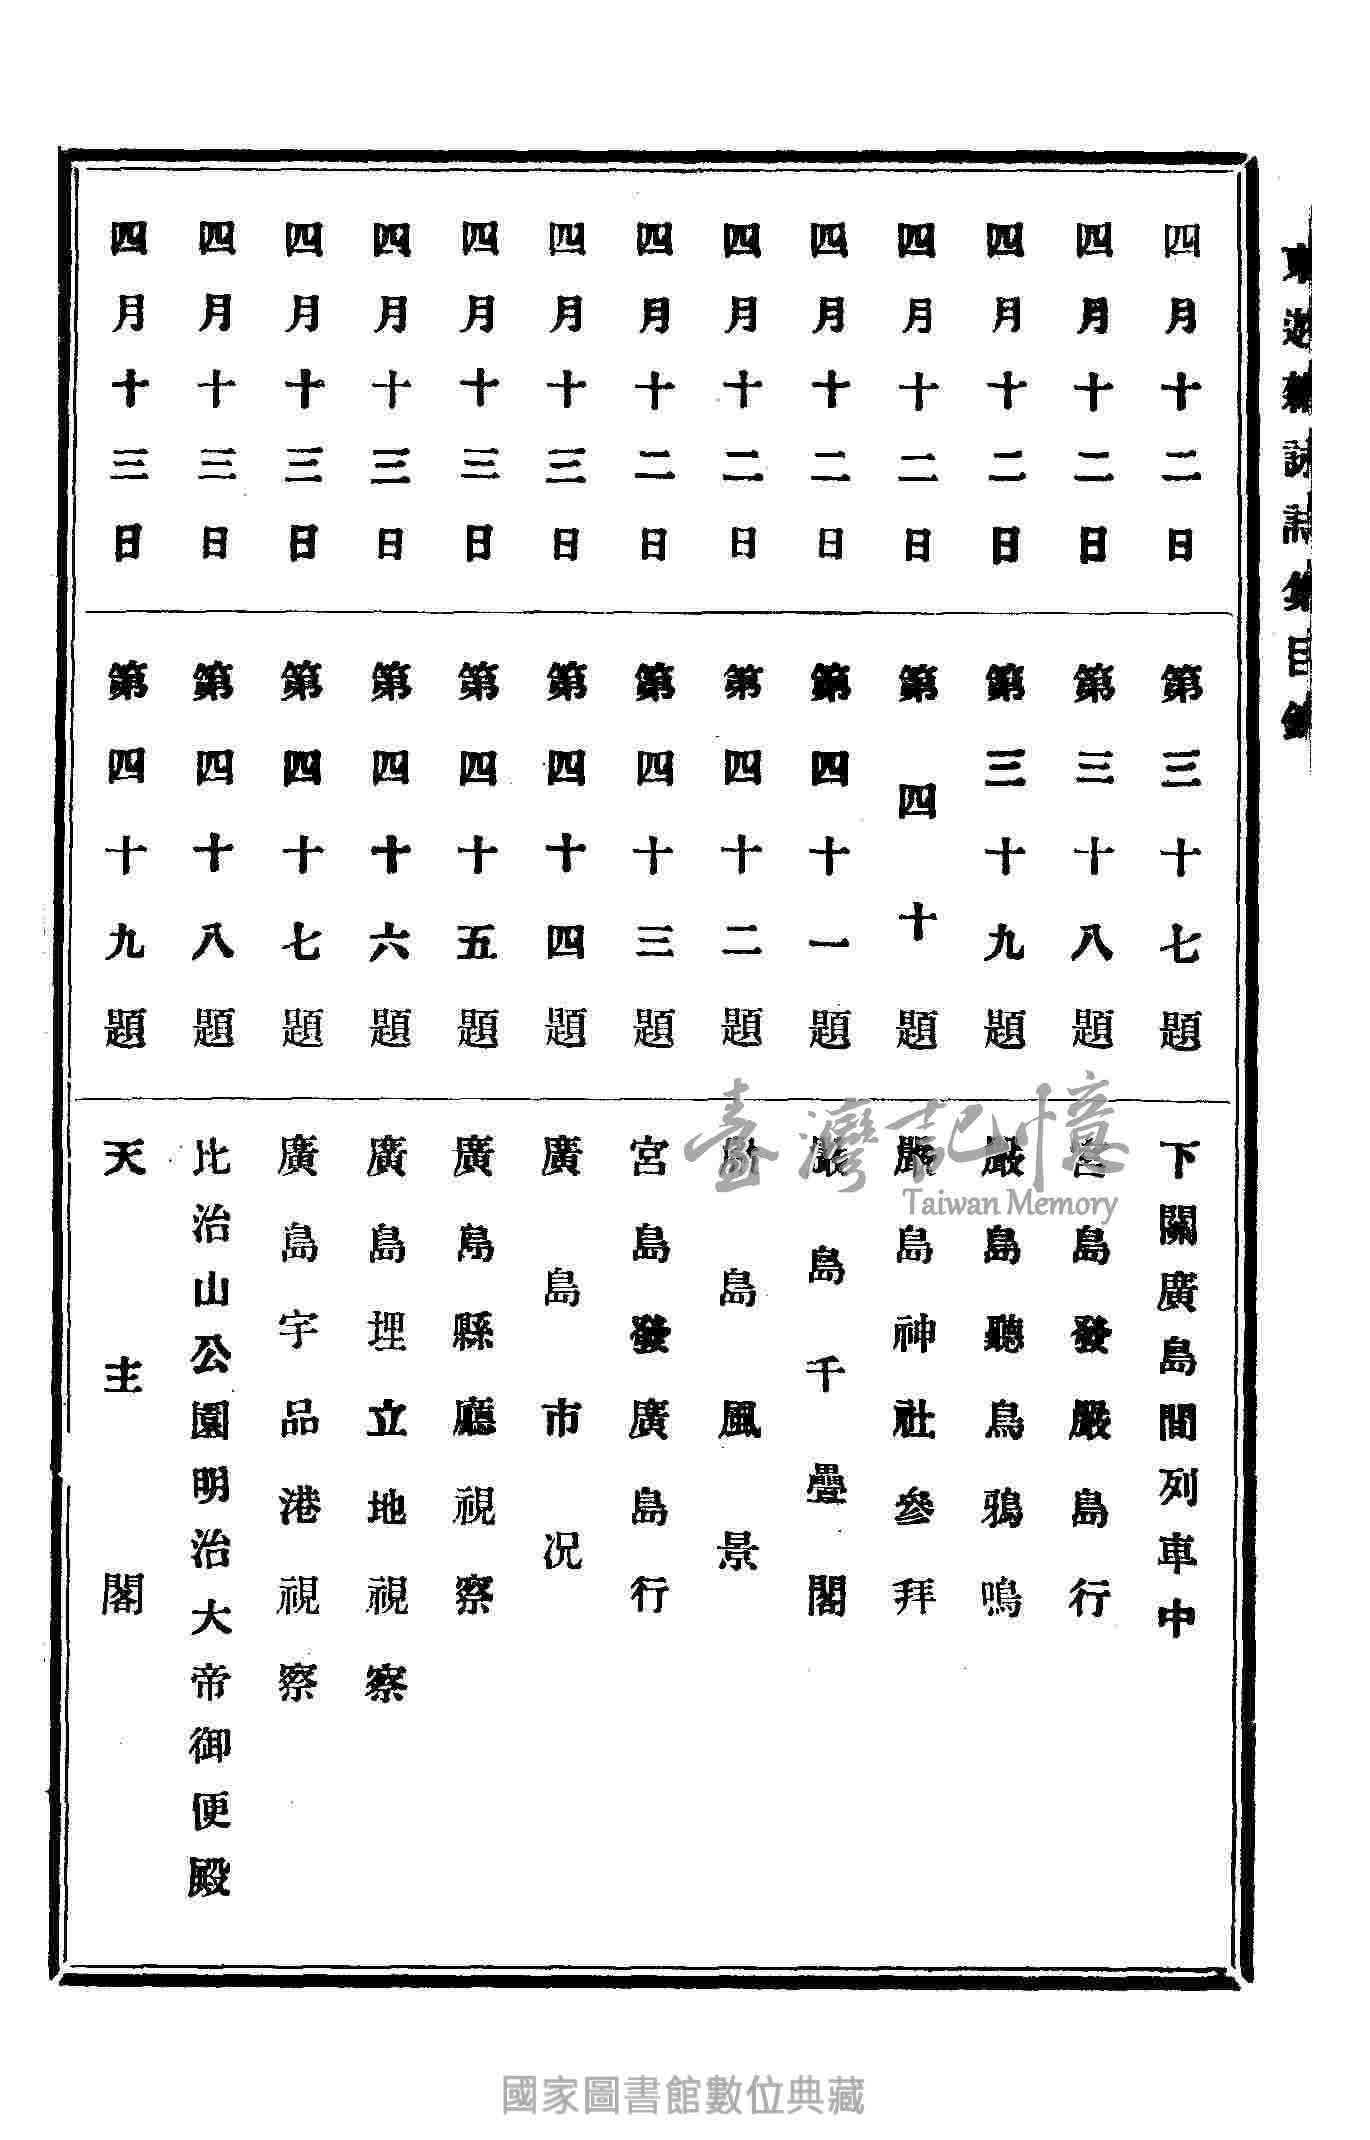 東遊雜詠詩集目錄
四月十二日 第三十七題 下關廣島間列車中
四月十二日 第三十八題 宮島發嚴島行
四月十二日 第三十九題 嚴島聽鳥鴉鳴
四月十二日 第四十題 嚴島神社參拜
四月十二日 第四十一題 嚴島千疊閣
四月十二日 第四十二題 島風景
四月十二日 第四十三題 宮島發廣島行
四月十三日 第四十四題 廣島市况
四月十三日 第四十五題 廣島縣廳視察
四月十三日 第四十六題 廣島埋立地視察
四月十三日 第四十七題 廣島宇品港視察
四月十三日 第四十八題 比治山公園明治大帝御便殿
四月十三日 第四十九題 天主閣
臺灣記憶
Taiwan Memory
國家圖書館數位典藏